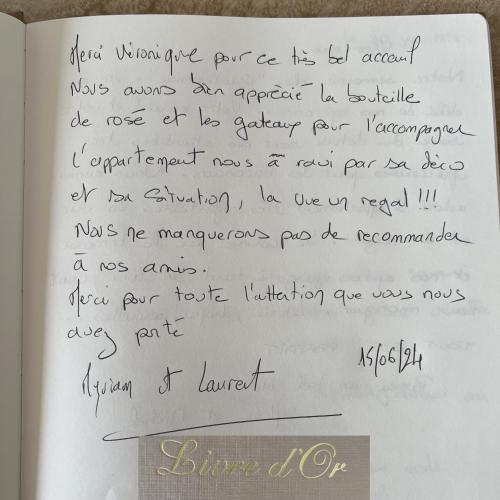 Merci Véronique pour ce très bel accueil
Nous avons bien apprécié la bouteille
de rosé et les gateaux pour l'accompagner
L'appartement nous à ravi par sa déco
et sa situation, la vue un regal !!!
Nous ne manquerons pas de recommander
à nos amis.
Merci pour toute l'attention que vous nous
avez porté
Myriam et Laurent
15/06/24
Livre d'Or